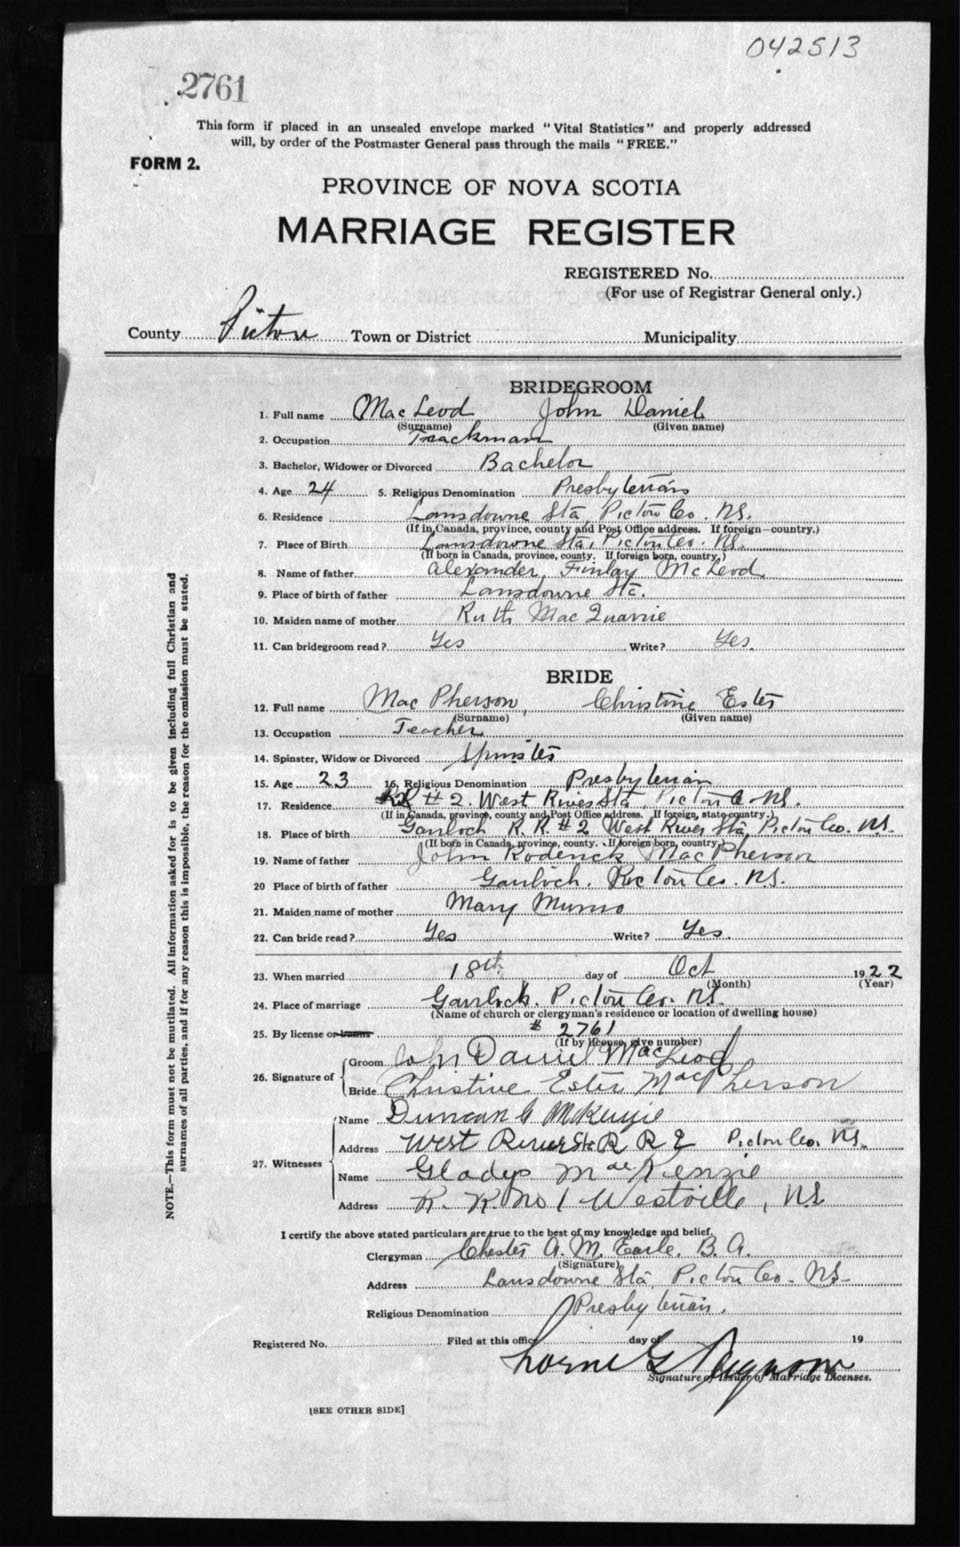 042513
2761
This form if placed in an unsealed envelope marked "Vital Statistics" and properly addressed
will, by order of the Postmaster General pass through the mails "FREE."
FORM 2.
PROVINCE OF NOVA SCOTIA
MARRIAGE REGISTER
REGISTERED No.
(For use of Registrar General only.)
County Pictou Town or District Municipality
BRIDEGROOM
1. Full name MacLeod John Daniel
(Surname) (Given name)
2. Occupation Trackman
3. Bachelor, Widower or Divorced Bachelor
4. Age 24 5. Religious Denomination Presbyterian
6. Residence Lansdowne Sta Pictou Co. N.S.
(If in Canada, province, county and Post Office address. If foreign—country.)
7. Place of Birth Lansdowne Sta, Pictou Co. N.S.
(If born in Canada, province, county. If foreign born, country.)
8. Name of father Alexander Finlay McLeod
9. Place of birth of father Lansdowne Sta.
10. Maiden name of mother Ruth MacQuarrie
11. Can bridegroom read? Yes Write? Yes.
BRIDE
12. Full name MacPherson, Christine Ester
(Surname) (Given name)
13. Occupation Teacher
14. Spinster, Widow or Divorced Spinster
15. Age 23 16. Religious Denomination Presbyterian
17. Residence RR #2. West River Sta, Pictou Co N.S.
(If in Canada, province, county and Post Office address. If foreign, state country.)
18. Place of birth Gairloch R.R. #2 West River Sta, Pictou Co. N.S.
(If born in Canada, province, county. If foreign born, country.)
19. Name of father John Roderick MacPherson
20 Place of birth of father Gairloch, Pictou Co. N.S.
21. Maiden name of mother Mary Munro
22. Can bride read? Yes Write? Yes.
23. When married 18th day of Oct 1922
(Month) (Year)
24. Place of marriage Gairloch. Pictou Co. N.S.
(Name of church or clergyman's residence or location of dwelling house)
25. By license or banns # 2761
(If by license, give number)
26. Signature of
Groom John Daniel MacLeod
Bride Christine Ester MacPherson
27. Witnesses
Name Duncan G McKenzie
Address West River Sta R R 2 Pictou Co, N.S.
Name Gladys MacKenzie
Address R. R. No 1 Westville, N.S
I certify the above stated particulars are true to the best of my knowledge and belief.
Clergyman Chester A. M. Earle, B. A.
(Signature)
Address Lansdowne Sta, Pictou Co. N.S.
Religious Denomination Presbyterian.
Registered No. Filed at this office day of 19
Lorne G
Signature of Issuer of Marriage Licenses.
[SEE OTHER SIDE]
NOTE.—This form must not be mutilated. All information asked for is to be given including full Christian and
surnames of all parties, and if for any reason this is impossible, the reason for the omission must be stated.